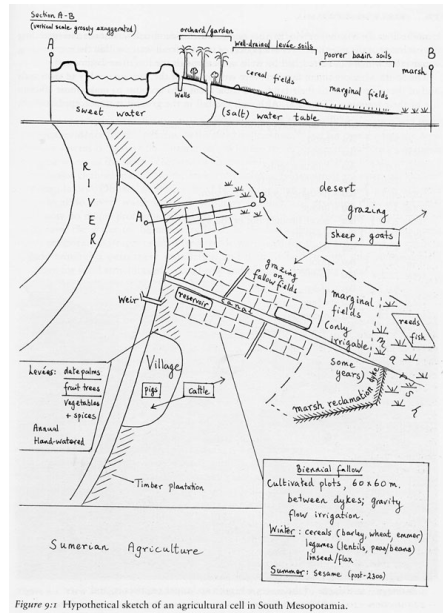 Section A-B
(vertical scale grossly exaggerated)
orchard/garden
well-drained levée soils
poorer basin soils
A
B
marsh
cereal fields
marginal fields
Wells
sweet water
(salt) water table
RIVER
A
B
desert
grazing
sheep, goats
grazing on
fallow fields
Weir
reservoir
canal
marginal
fields
(only
irrigable
some
years)
reeds
fish
marsh
marsh reclamation dyke
Levées: datepalms
fruit trees
vegetables
+ spices
Annual
Hand-watered
Village
pigs
cattle
Timber plantation
Biennial fallow
Cultivated plots, 60x60m.
between dykes; gravity
flow irrigation.
Winter: cereals (barley, wheat, emmer)
legumes (lentils, peas/beans)
linseed/flax
Summer: sesame (post-2300)
Sumerian Agriculture
Figure 9:1 Hypothetical sketch of an agricultural cell in South Mesopotamia.